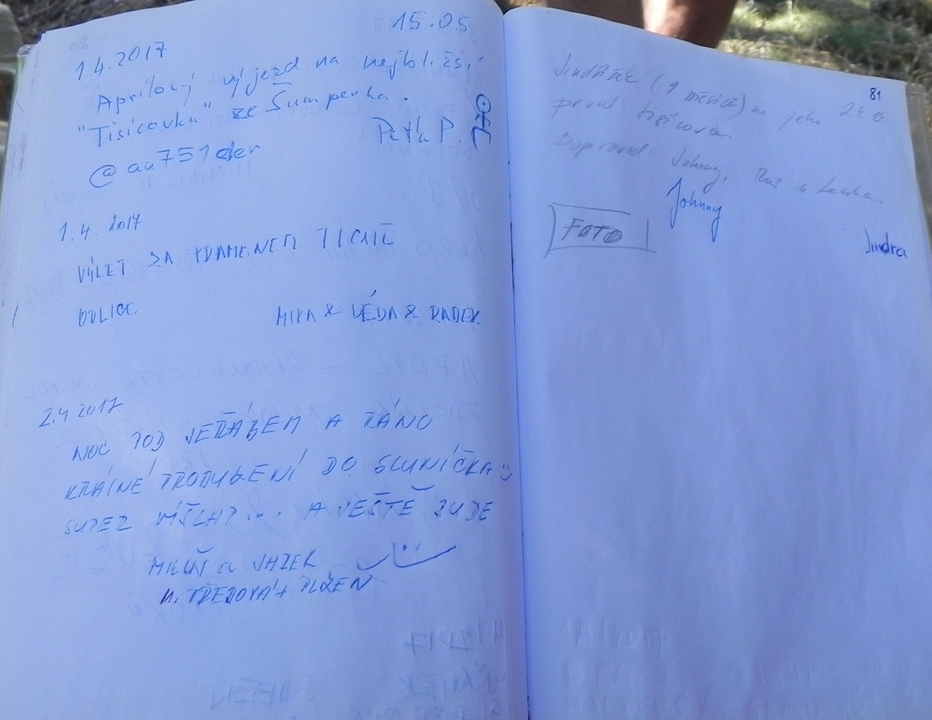 15.05
1.4.2017
Aprílový výjezd na nejbližší
"Tisícovku" ze Šumperka.
@av751der
Petr P.
1.4. 2017
VÝLET ZA TICHÉ
MIKA & VÉĎA & RADEK
2.4 2017
NOC POD JEŘÁBEM A RÁNO
KRÁSNÉ PROBUZENÍ DO SLUNÍČKA
SUPER VÝŠLAP... A JEŠTĚ BUDE
MILUŠ a JAZEK
+ PLZEŇ
81
Jindříšek (9 měsíců) na jeho
první tisícovce.
Doprovod: Johny, a Lenka.
Johnny
FOTO
Jindra